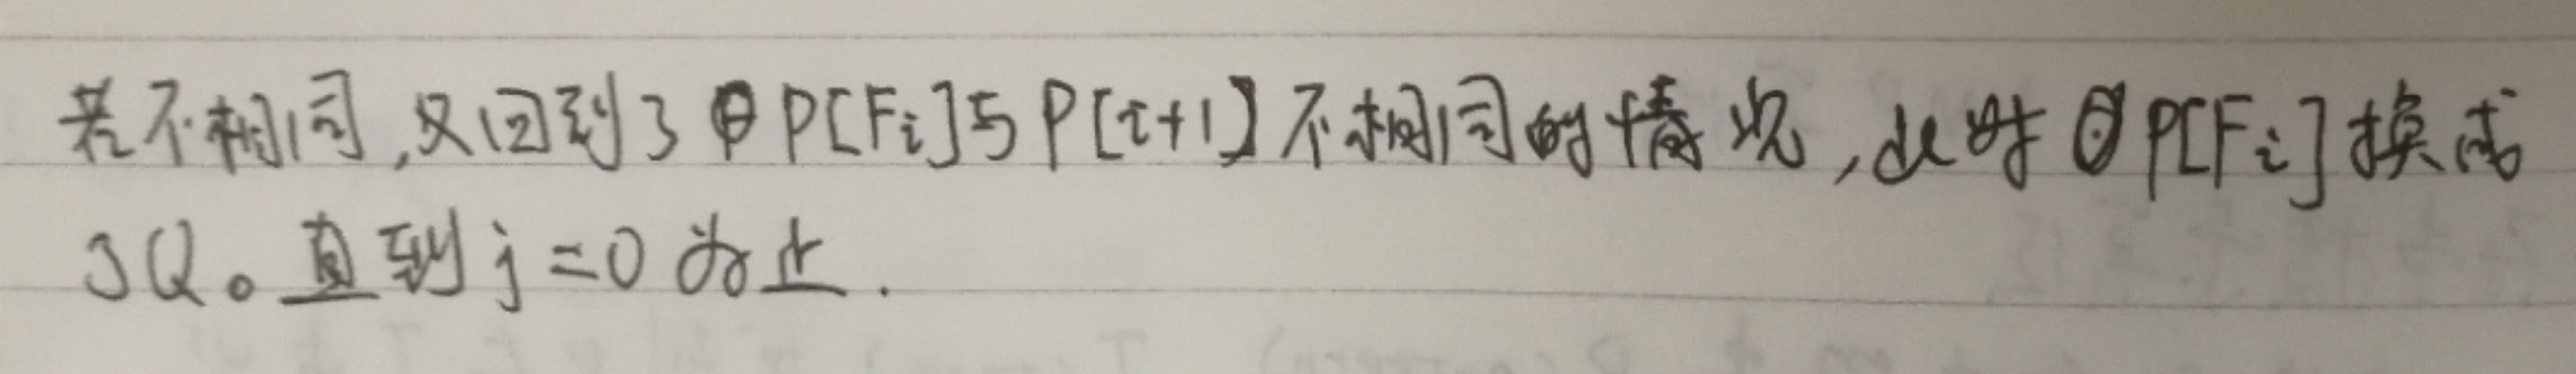 若不相同,又回到了P[Fi]与P[i+1]不相同的情况,此时P[Fi]换成
了Q。直到j=0为止.